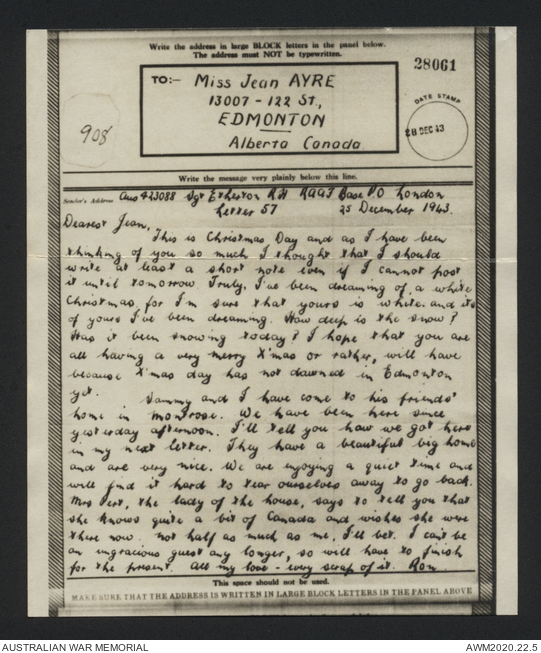 Write the address in large BLOCK letters in the panel below.
The address must NOT be typewritten.
28061
TO:- Miss Jean AYRE
13007 - 122 ST.,
EDMONTON
Alberta Canada
908
DATE STAMP
28 DEC 43
Write the message very plainly below this line.
Sender's Address Aus 423088 Sgt Etherton R H RAAF Base PO London
Letter 57 25 December 1943.
Dearest Jean,
This is Christmas Day and as I have been
thinking of you so much I thought that I should
write at least a short note even if I cannot post
it until tomorrow. Truly, I've been dreaming of a white
Christmas, for I'm sure that yours is white. and its
of yours I've been dreaming. How deep is the snow?
Has it been snowing today? I hope that you are
all having a very merry X'mas or rather, will have
because X'mas day has not dawned in Edmonton
yet.
Sammy and I have come to his friends'
home in Montrose. We have been here since
yesterday afternoon. I'll tell you how we got here
in my next letter. They have a beautiful big home
and are very nice. We are enjoying a quiet time and
will find it hard to tear ourselves away to go back.
Mrs Pert, the lady of the house, says to tell you that
she knows quite a bit of Canada and wishes she were
there now. not half as much as me, I'll bet. I can't be
an ungracious guest any longer, so will have to finish
for the present. All my love - every scrap of it. Ron
This space should not be used.
MAKE SURE THAT THE ADDRESS IS WRITTEN IN LARGE BLOCK LETTERS IN THE PANEL ABOVE
AUSTRALIAN WAR MEMORIAL
AWM2020.22.5